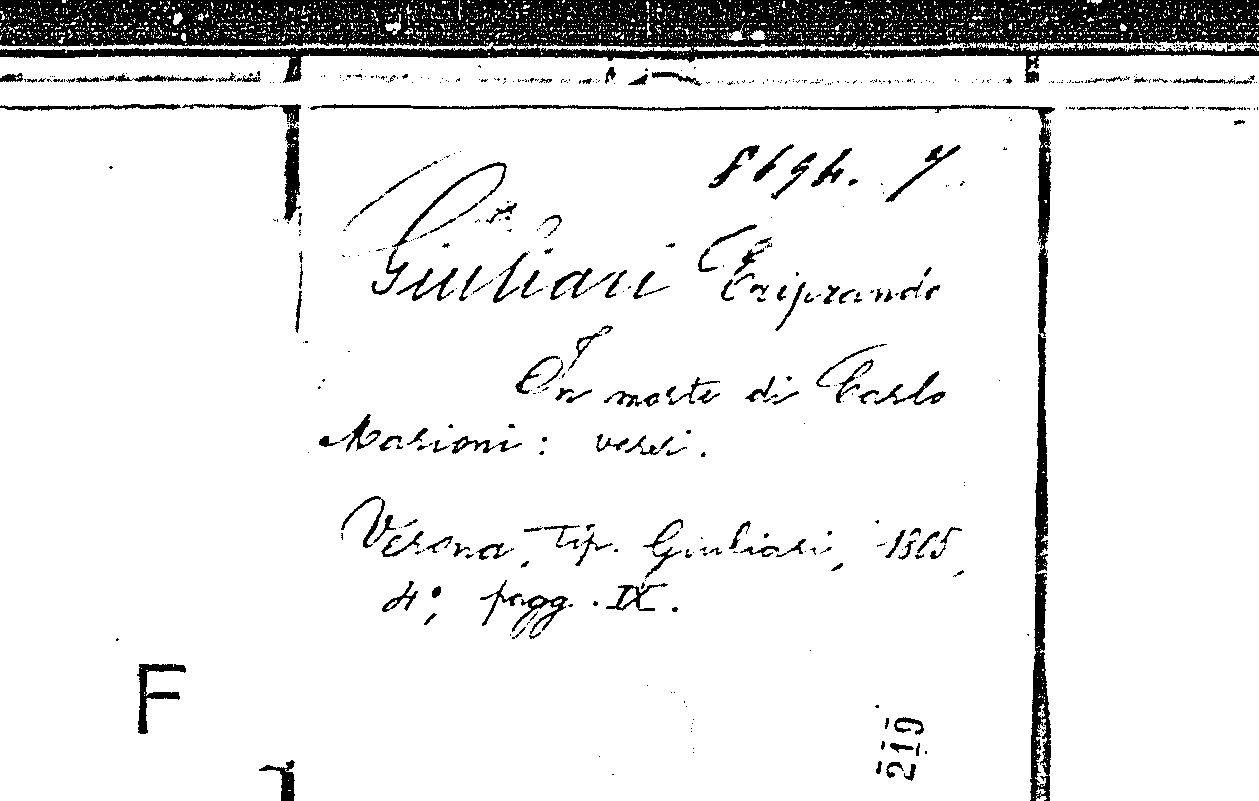 8694. 7
Giuliari Eriprando
In morte di Carlo
Marioni: versi.
Verona, Tip. Giuliari, 1865,
4°, pagg. IX.
F
219